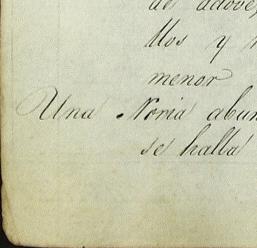 de adove
llos y
menor
Una Noria abun
se halla